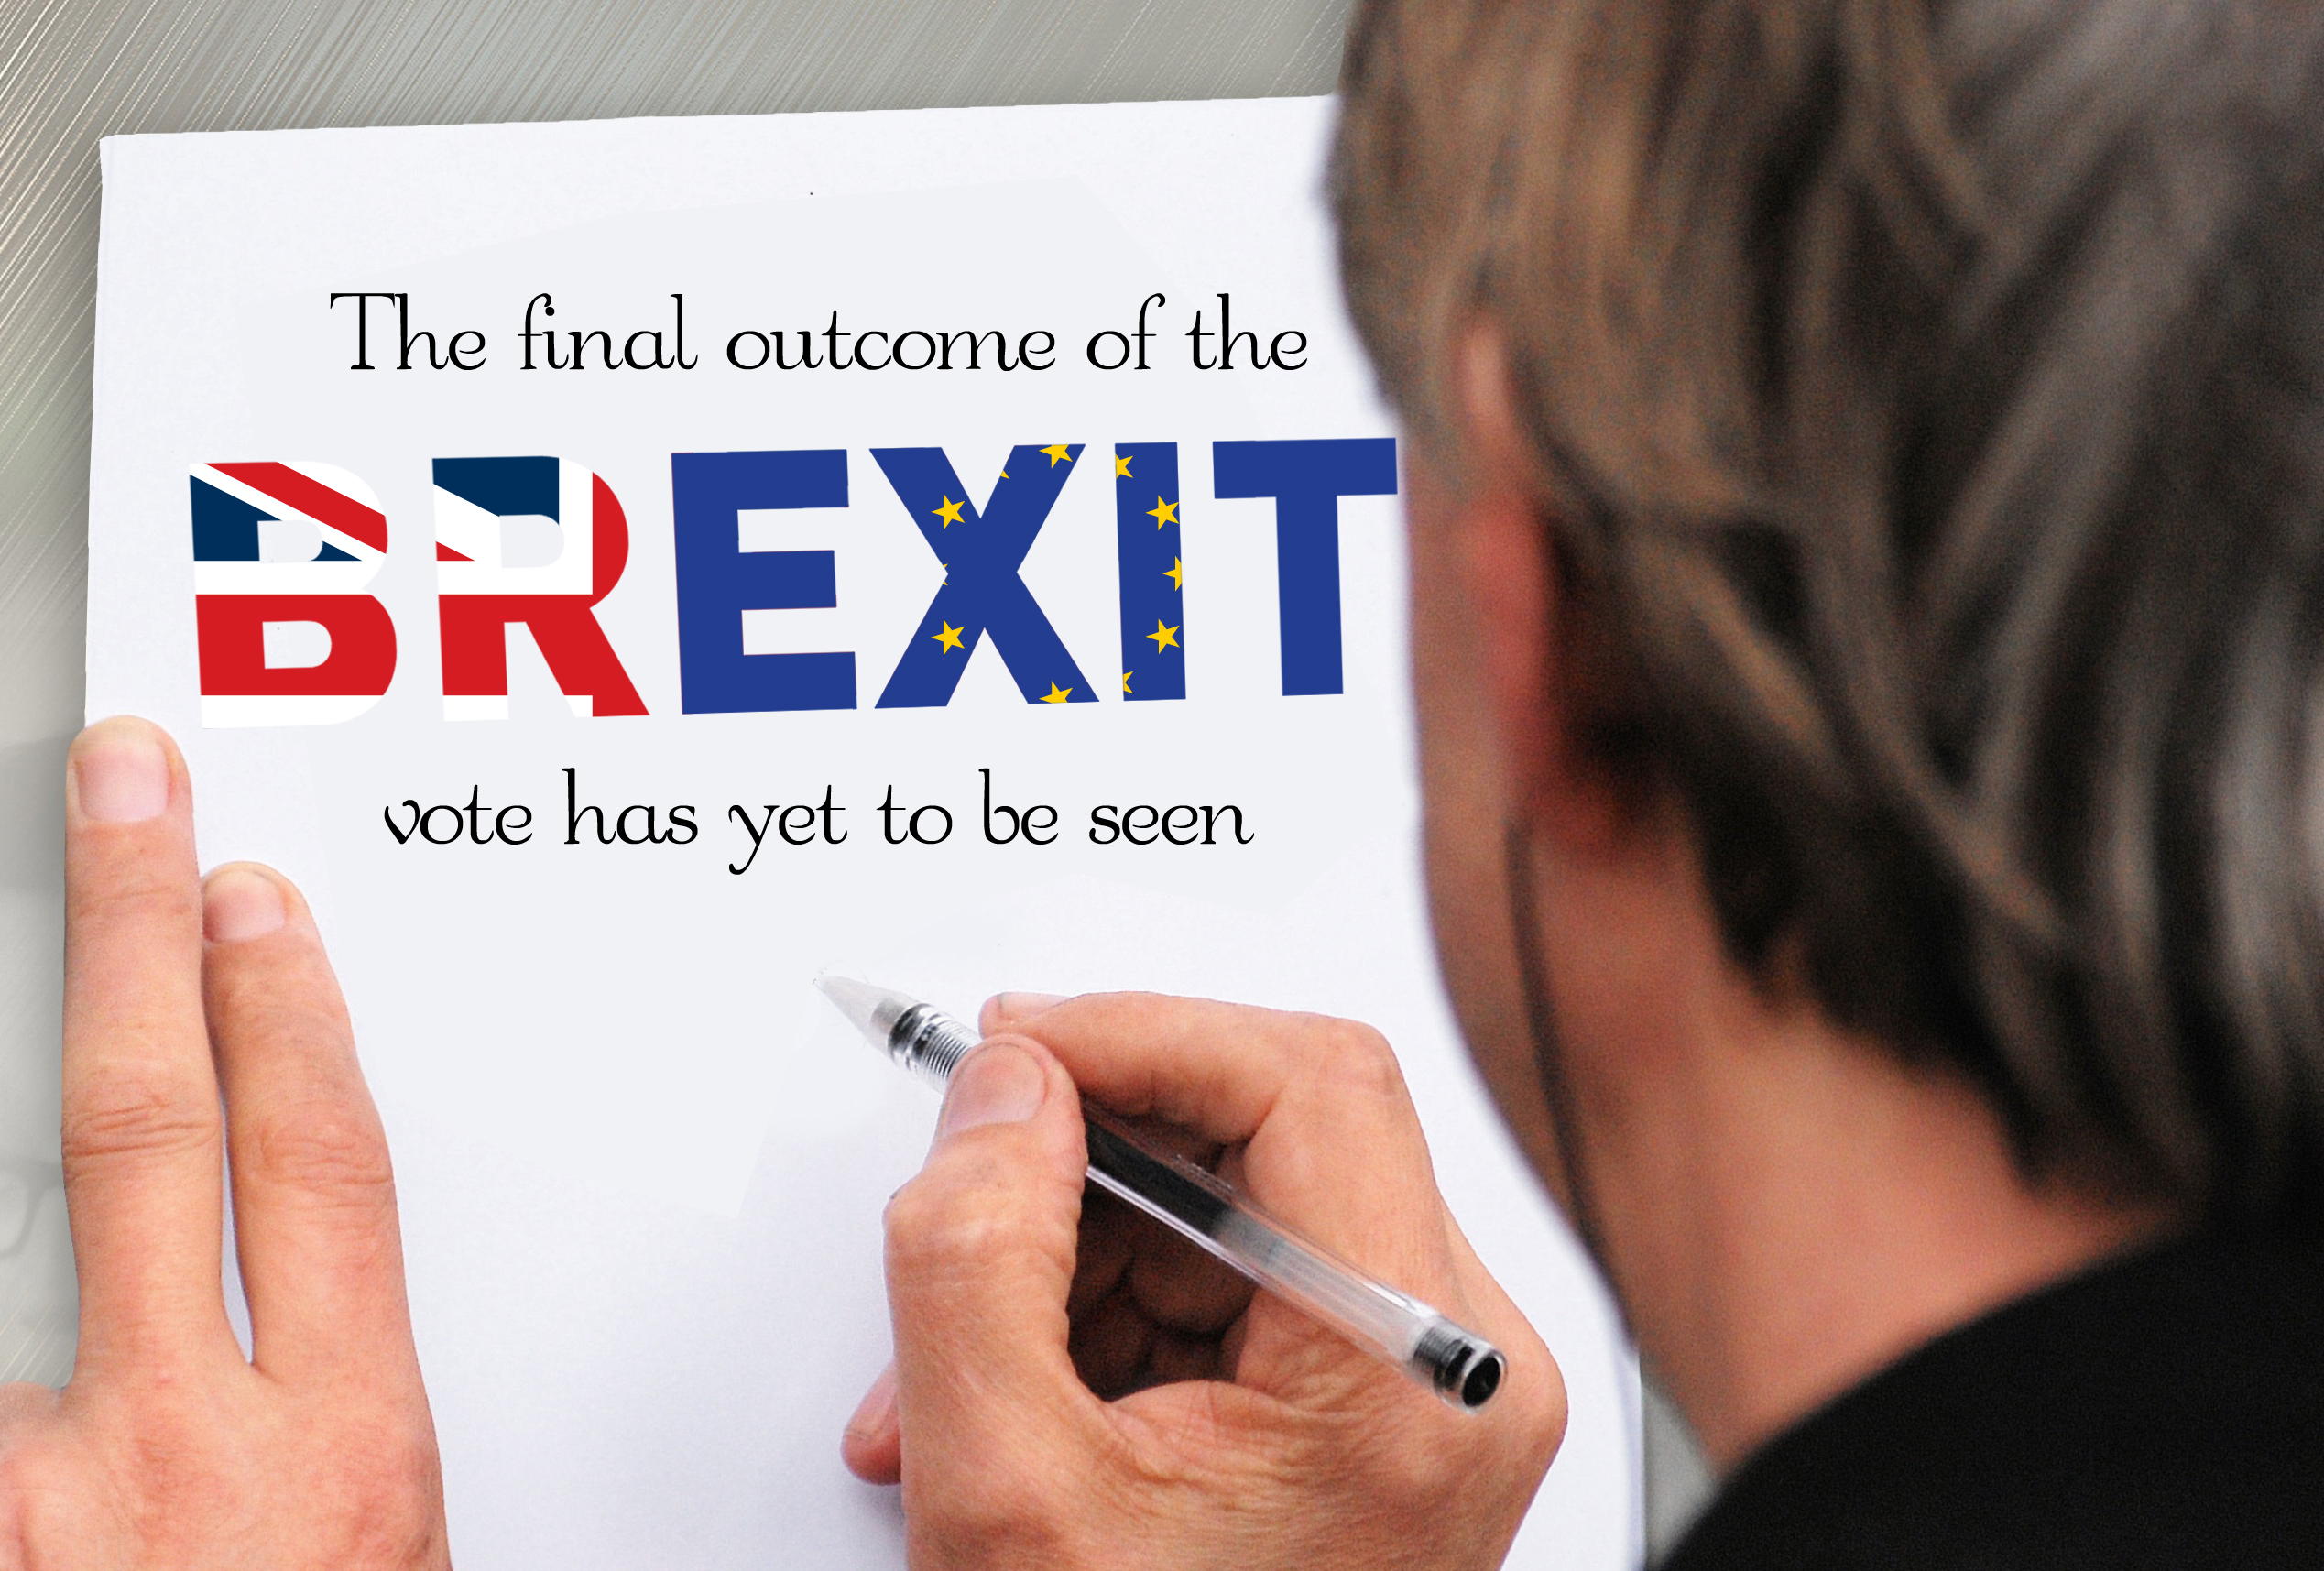 The final outcome of the
BREXIT
vote has yet to be seen